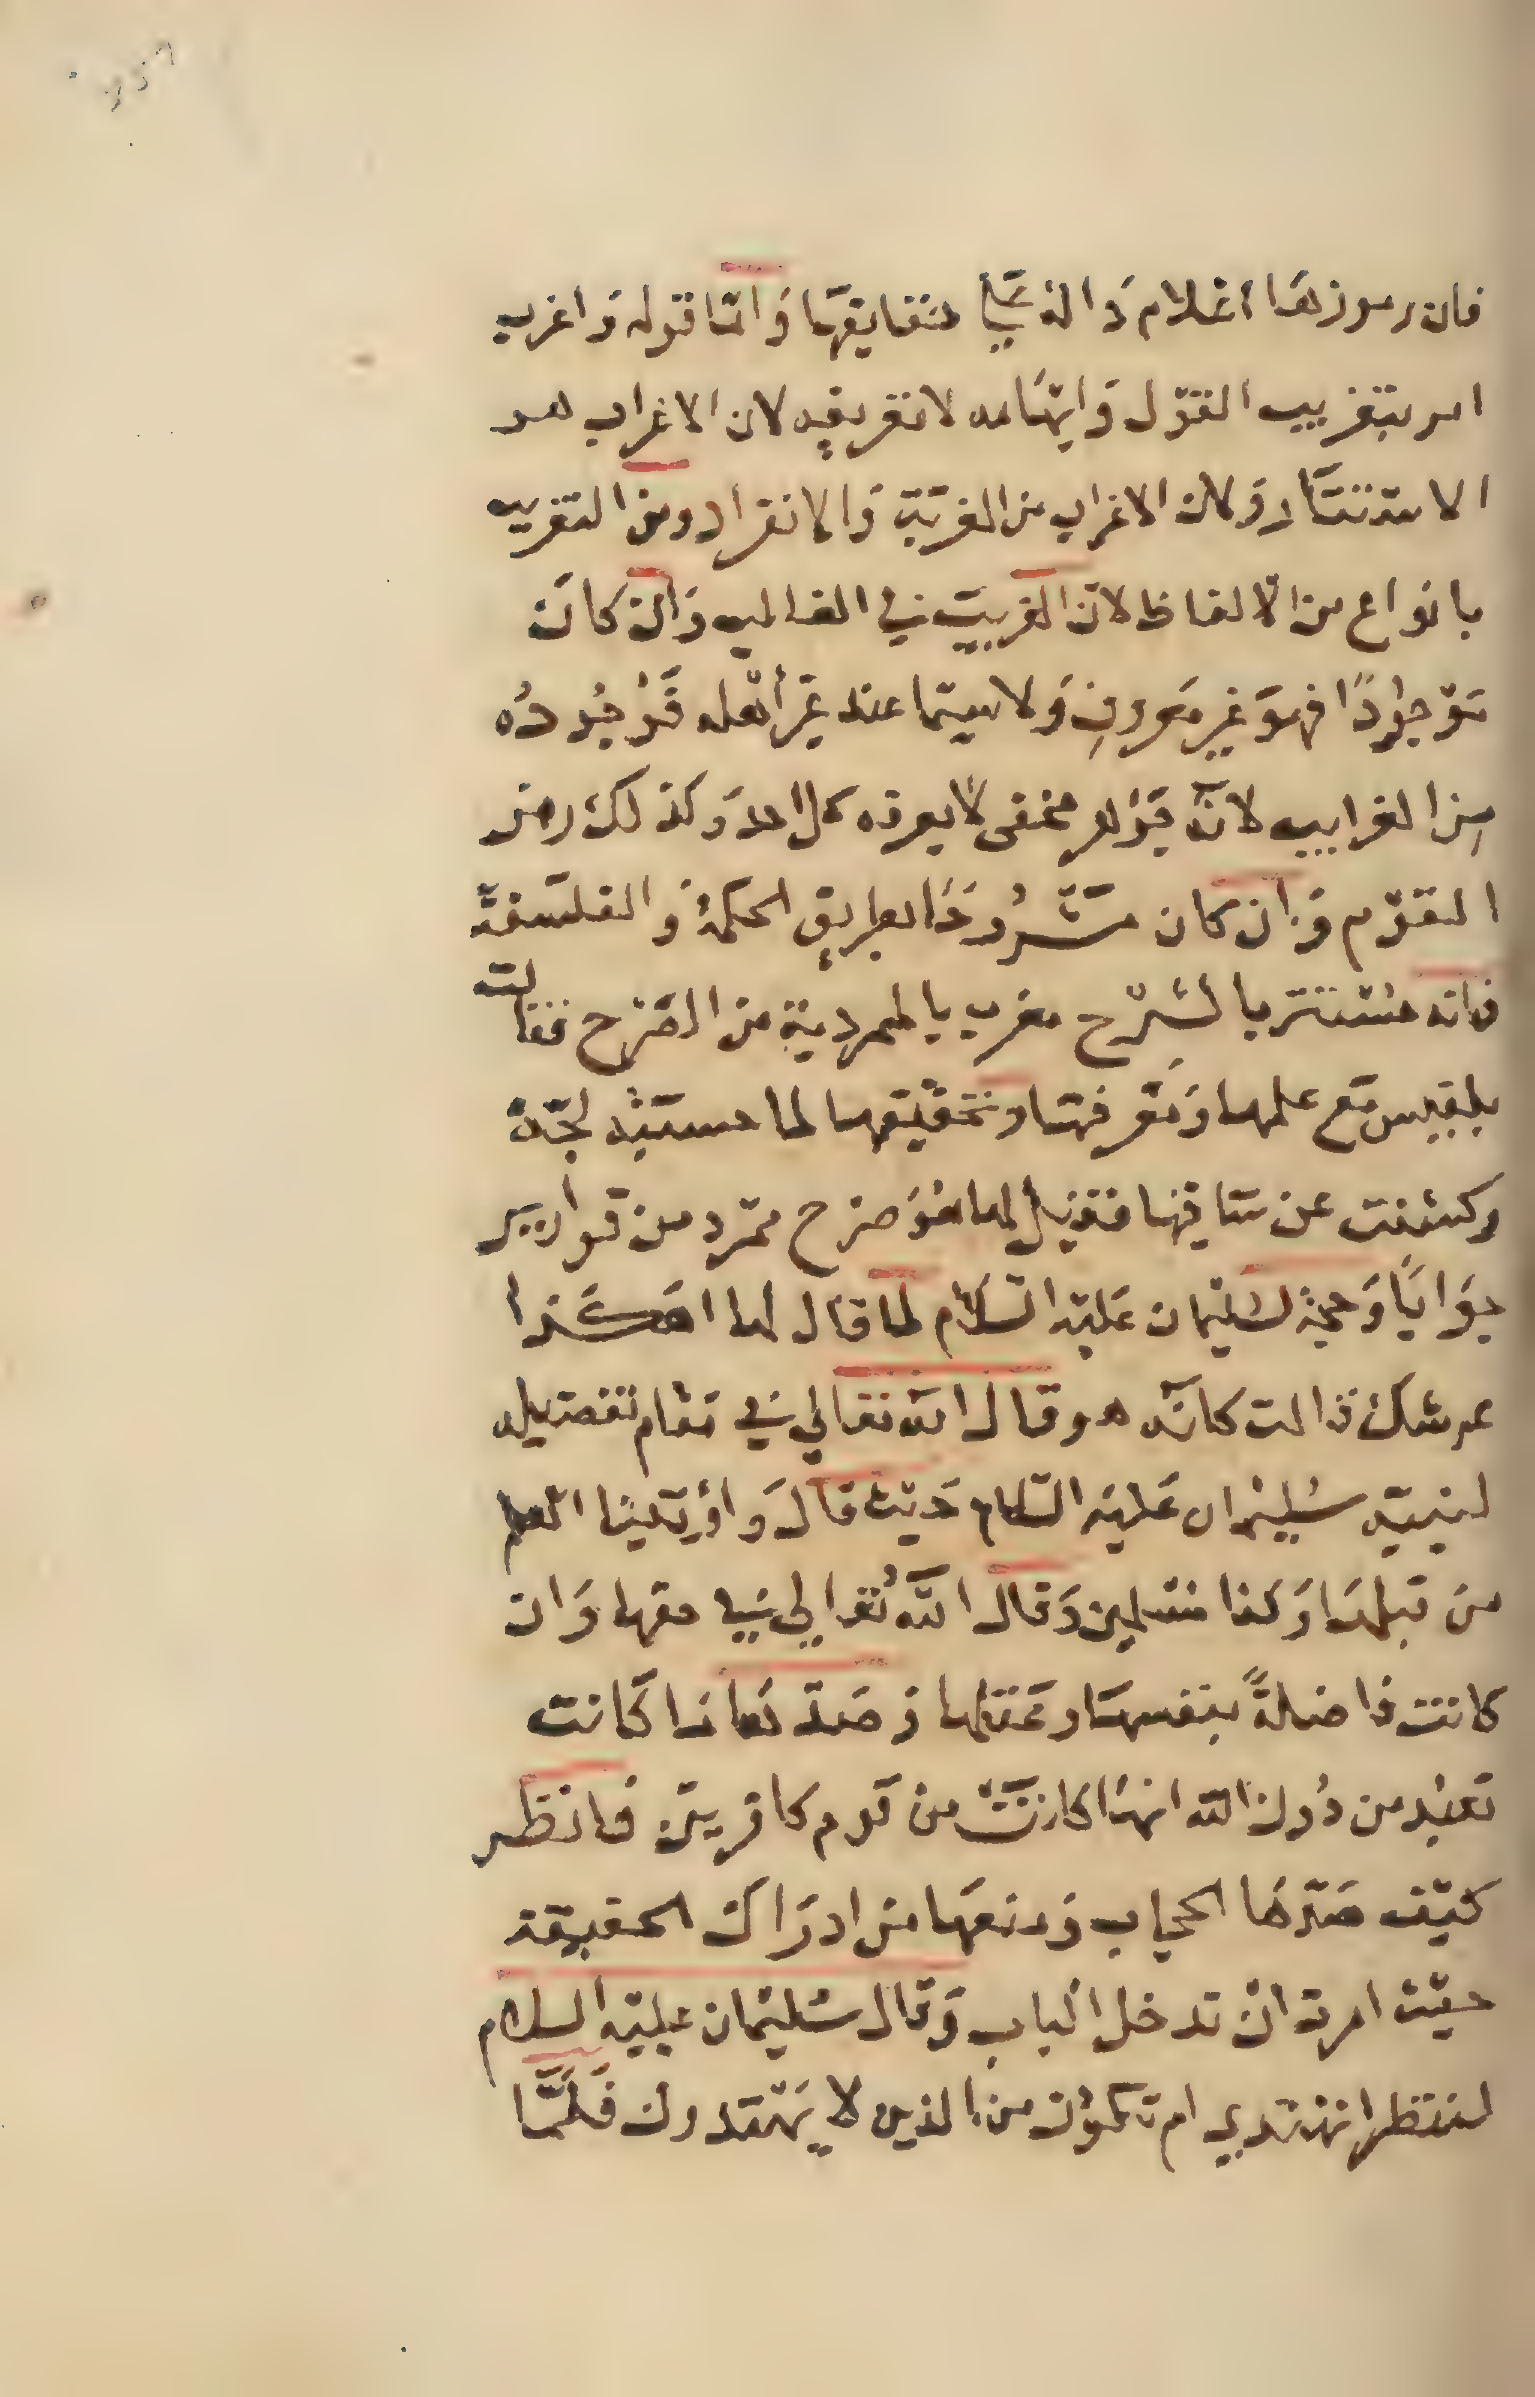 فان رموزها اعلام دالة على حقايقها واما قوله واغرب
امر بتغريب القول وايهامه لا تعريفه لان الاغراب هو
الاستتار ولان الاغراب من الغربة والانفراد ومن التغريب
بانواع من الالفاظ لان الغريب في الغالب وان كان
موجودا فهو غير معروف ولا سيما عند غير اهله فوجوده
من الغرايب لانه جوهر مخفى لا يعرفه كل احد وكذلك رمز
القوم وان كان مشروحا بطريق الحكمة والفلسفة
فانه مستتر بالشرح مغرب بالممردية من الصرح فقالت
بلقيس مع علمها ومعرفتها وتحقيقها لما حسبته لجة
وكشفت عن ساقيها فقيل لها هو صرح ممرد من قوارير
جوابا وحجة لسليمان عليه السلام لما قال لها اهكذا
عرشك قالت كانه هو وقال الله تعالى في مقام تفضيله
لنبيه سليمان عليه السلام حيث قال واوتينا العلم
من قبلها وكنا مسلمين وقال الله تعالى في حقها وان
كانت فاضلة بنفسها وعقلها وصدها ما كانت
تعبد من دون الله انها كانت من قوم كافرين فانظر
كيف صدها الحجاب ومنعها من ادراك الحقيقة
حيث امرت ان تدخل الباب وقال سليمان عليه السلام
لننظر اتهتدي ام تكون من الذين لا يهتدون فلما